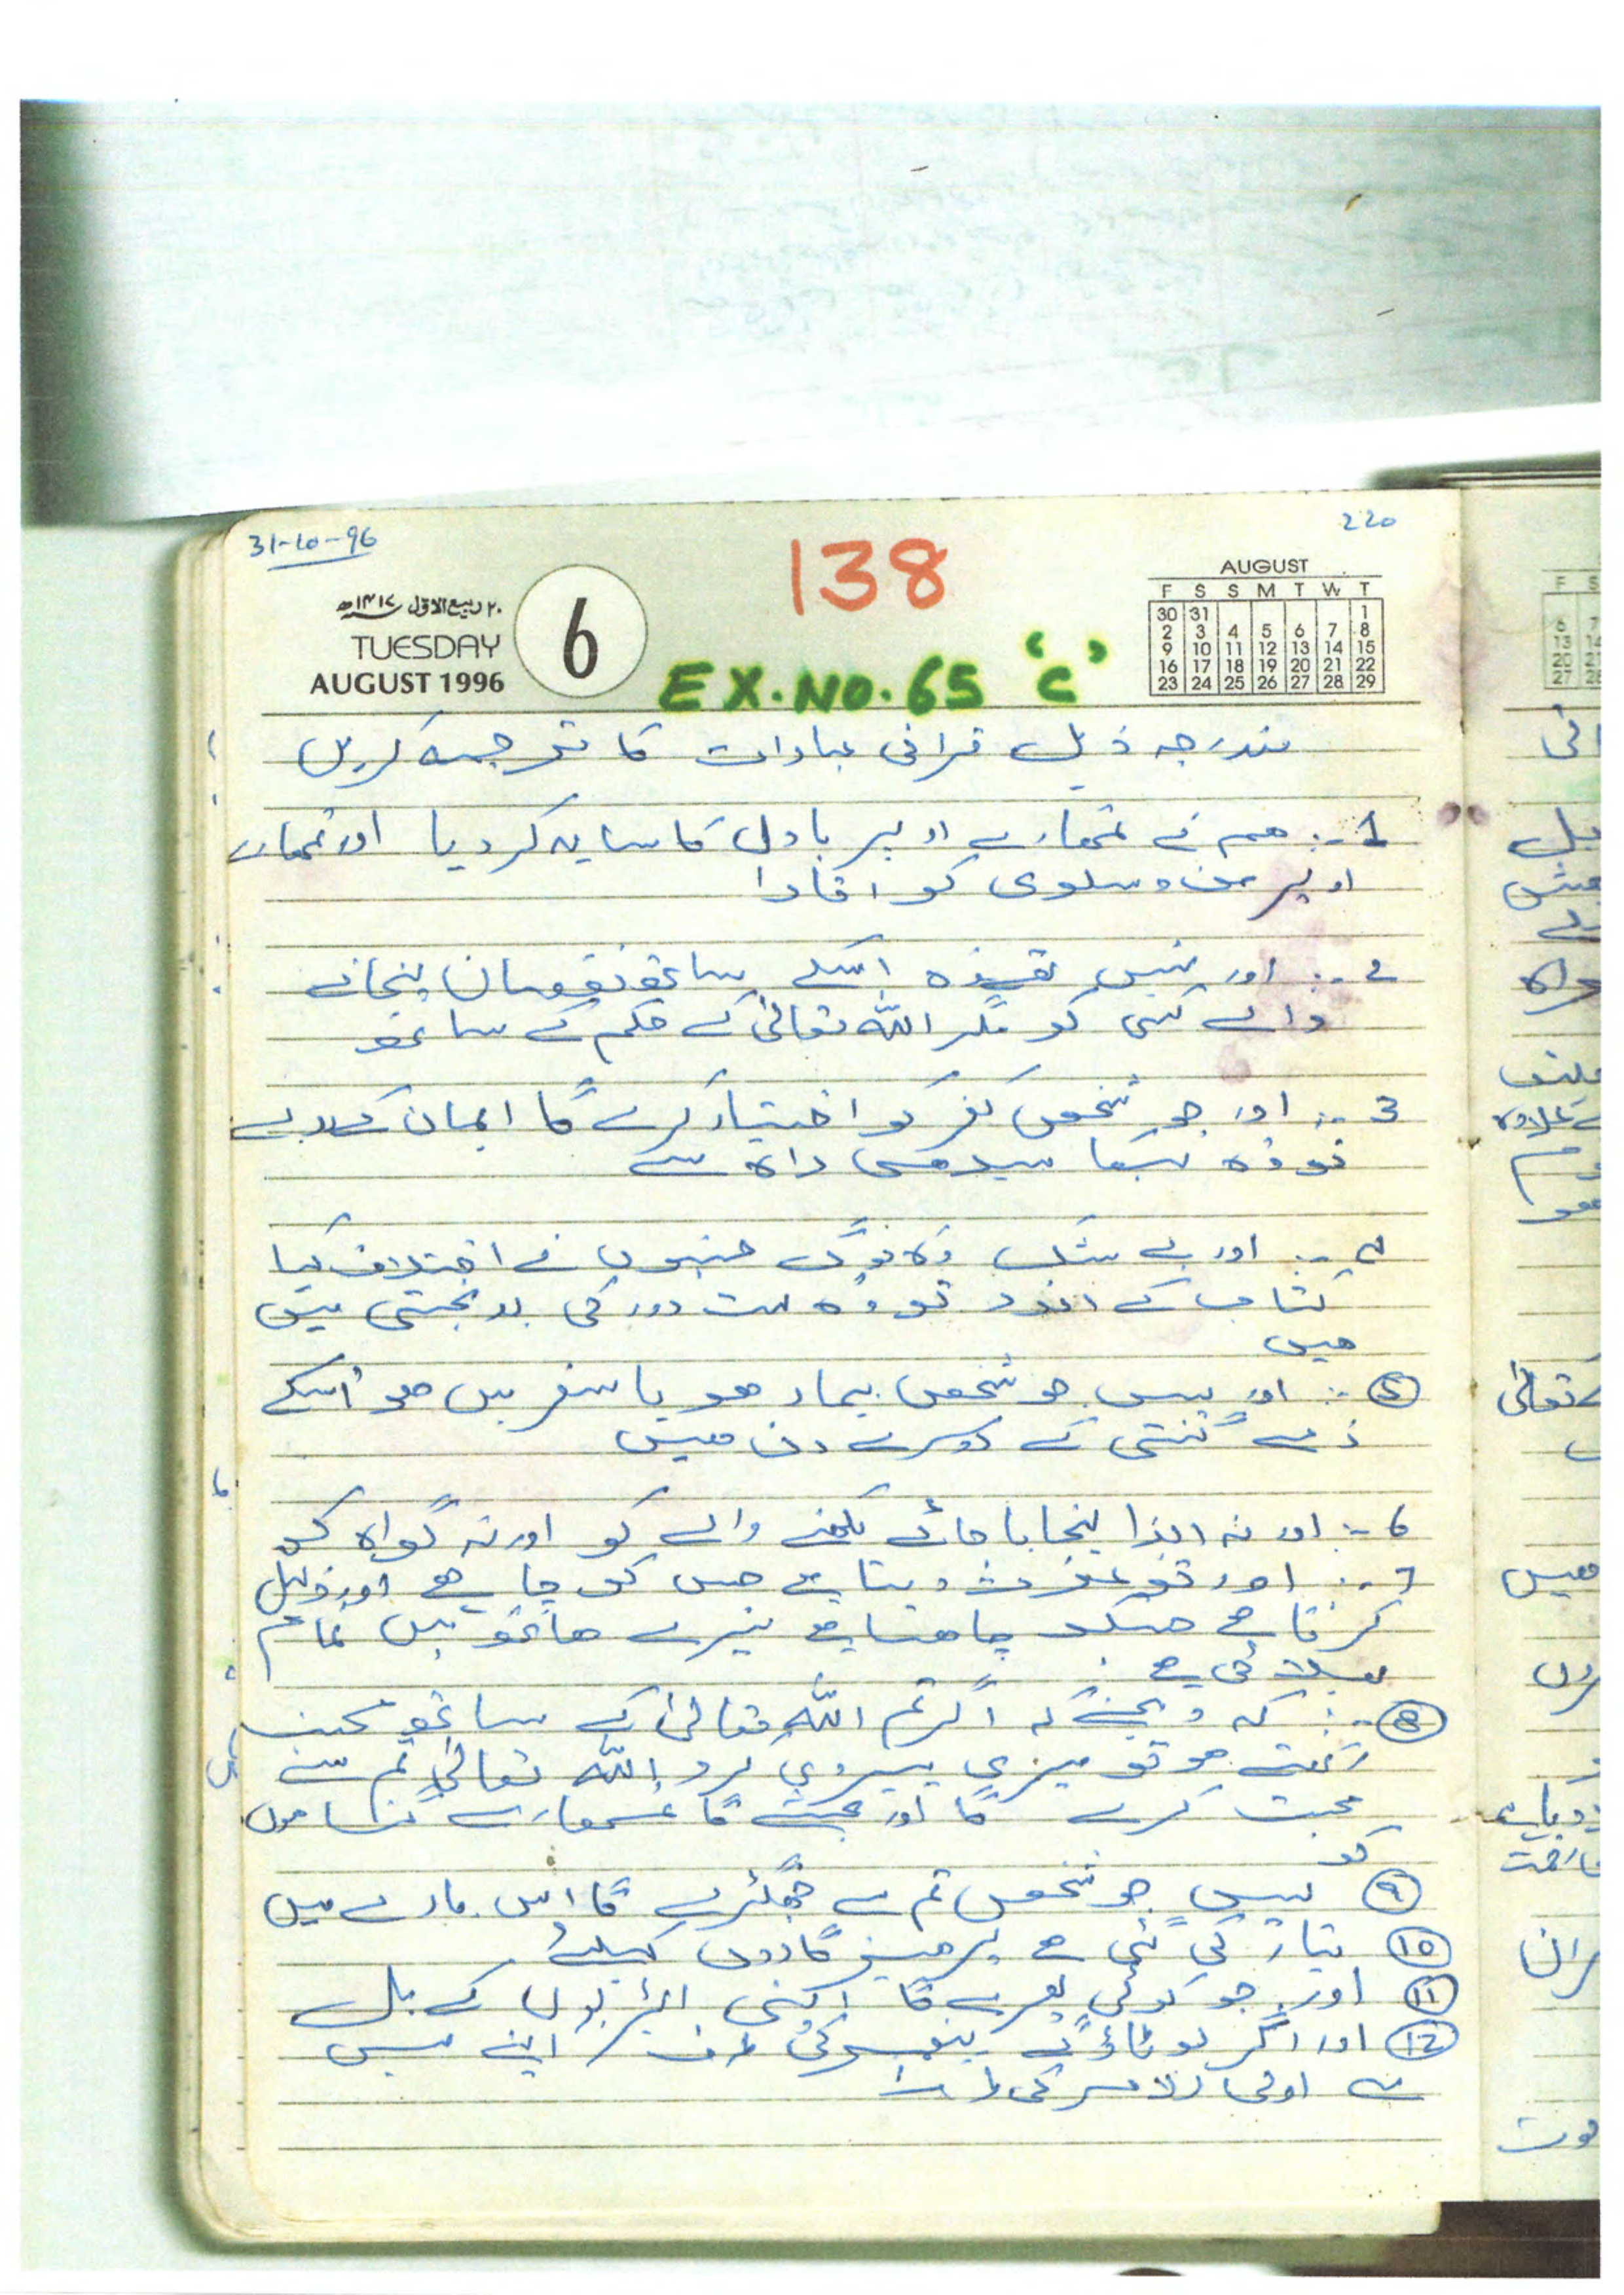 220
31-10-96
138
۲۰ ربیع الاول ۱۴۱۷ھ
TUESDAY
AUGUST 1996
6
EX.NO.65 'C'
AUGUST
F S S M T W T
30 31 1
2 3 4 5 6 7 8
9 10 11 12 13 14 15
16 17 18 19 20 21 22
23 24 25 26 27 28 29
مندرجہ ذیل قرانی عبارات کا ترجمہ کریں
1 :- ھم نے تمھارے اوپر بادل کا سایہ کر دیا اور تمھارے
اوپر من و سلوی کو اتارا
2 :- اور نہیں تھے وہ اسکے ساتھ نقصان پنچانے
والے کسی کو مگر اللہ تعالیٰ کے حکم کے ساتھ
3 :- اور جو شخص کفر کو اختیار کرے گا ایمان کے بدلے
تو وہ بھٹکا سیدھی راہ سے
4 :- اور بے شک وہ لوگ جنہوں نے اختلاف کیا
کتاب کے اندر تو وہ بہت دور کی بدبختی میں
ھیں
5 :- اور پس جو شخص بیمار ھو یا سفر میں ھو اسکے
ذمے گنتی ہے دوسرے دن میں
6 :- اور نہ ایذا پنچایا جائے لکھنے والے کو اور نہ گواہ کو
7 :- اور تو عزت دیتا ہے جس کو چاہے اور ذلیل
کرتا ہے جسکو چاھتا ہے تیرے ھاتھ میں تمام
بھلائی ہے
8 :- کہہ دیجئے کہ اگر تم اللہ تعالیٰ کے ساتھ محبت
رکھتے ھو تو میری پیروی کرو اللہ تعالیٰ تم سے
محبت کرے گا اور بخشے گا تمھارے گناھوں
کو
9 پس جو شخص تم سے جھگڑے گا اس بارے میں
10 تیار کی گئی ہے پرھیز گاروں کیلئے
11 اور جو کوئی پھرے گا اپنی ایڑیوں کے بل
12 اور اگر لوٹاؤ گے پیغمبر کی طرف / اپنے میں
سے اولی الامر کی طرف